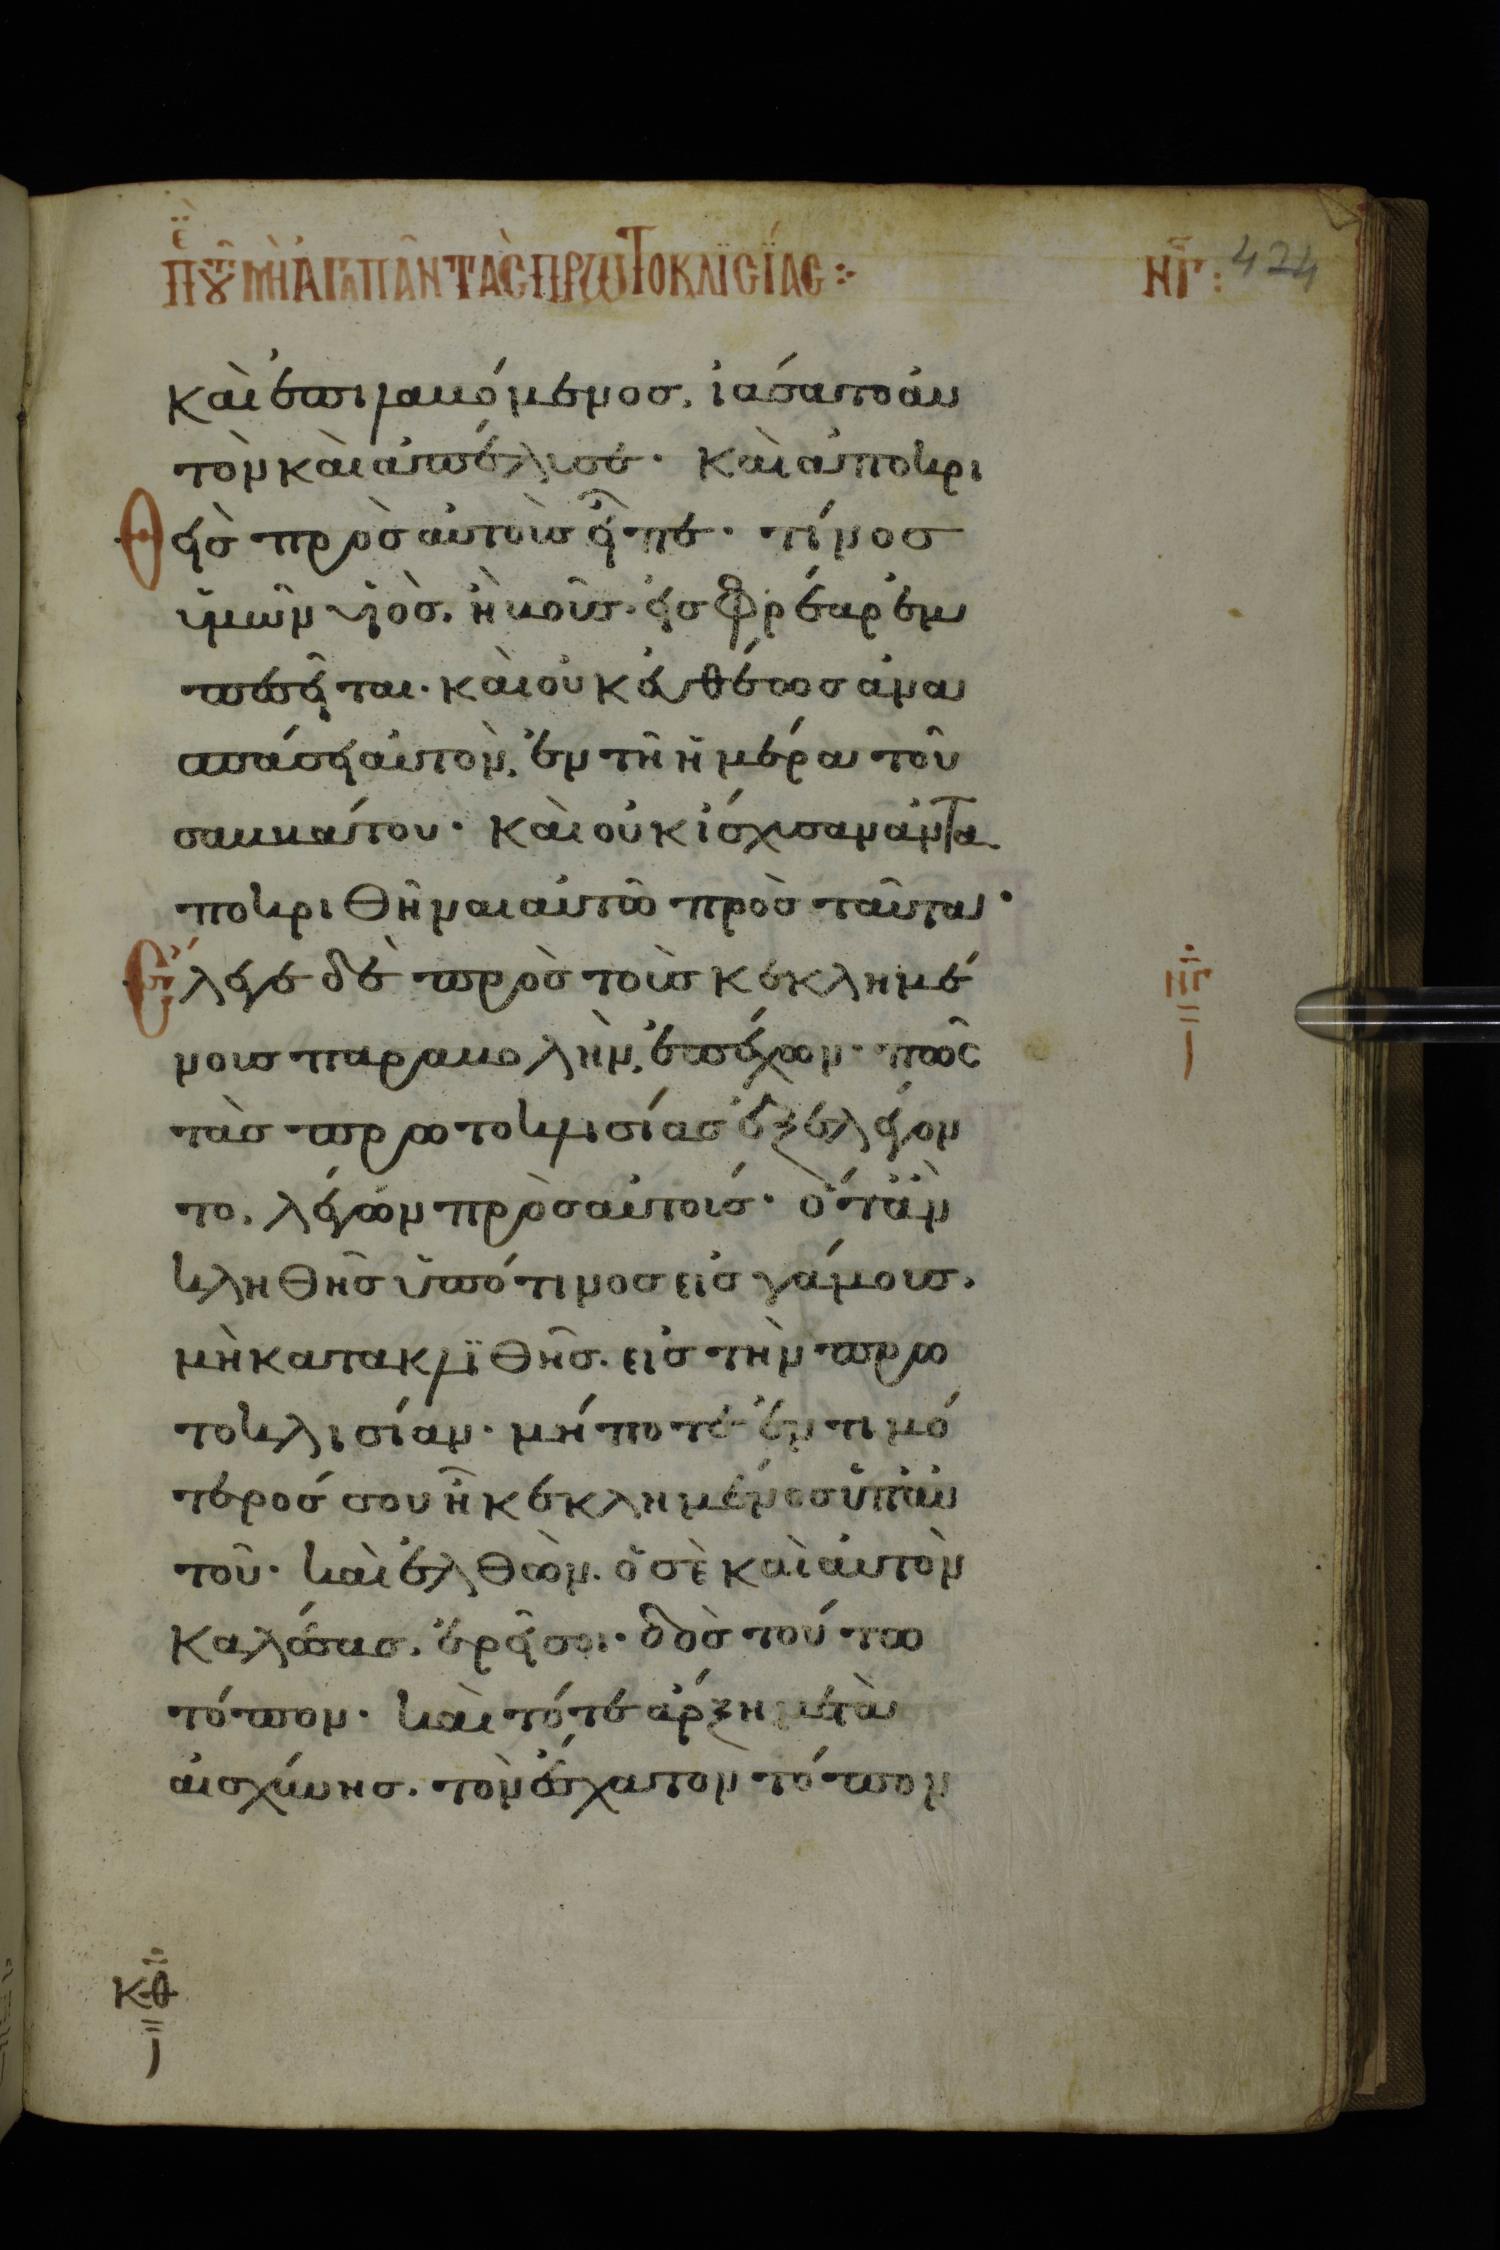 πε τοῦ μὴ ἀγαπᾶν τὰς πρωτοκλϊσϊας :· νγ : 424
καὶ ἐπιλαβόμενος. ἰάσατο αὐ
τὸν καὶ ἀπέλυσε· καὶ ἀποκρι
θεὶς πρὸς αὐτοὺς εἶπε· τίνος
ὑμῶν υἱὸς. ἢ βοῦς. εἰς φρέαρ ἐμ
πεσεῖται· καὶ οὐκ εὐθέως ἀνα
σπάσει αὐτὸν, ἐν τῆ ἡμέρα τοῦ
σαββάτου· καὶ οὐκ ἰσχυσαν ἀντα
ποκριθῆναι αὐτῶ πρὸς ταῦτα·
Ελεγε δὲ πρὸς τοὺς κεκλημέ
νους παραβολὴν, ἐπέχων· πῶς
τὰς πρωτοκλισίας ἐξελέγον
το. λέγων πρὸς αὐτούς· ὅτὰν
κληθῆς ὑπό τινος εἰς γάμους.
μὴ κατακλϊθῆς. εἰς τὴν πρω
τοκλισίαν· μήποτε ἐντιμό
τερός σου ἦ κεκλημένος ὑπ' αὐ
τοῦ· καὶ ἐλθὼν. ὁ σὲ καὶ αὐτὸν
καλέσας. ἐρεῖ σοι· δὸς τούτω
τόπον· καὶ τότε ἀρξη μετὰ
αἰσχύνης. τὸν ἔσχατον τόπον